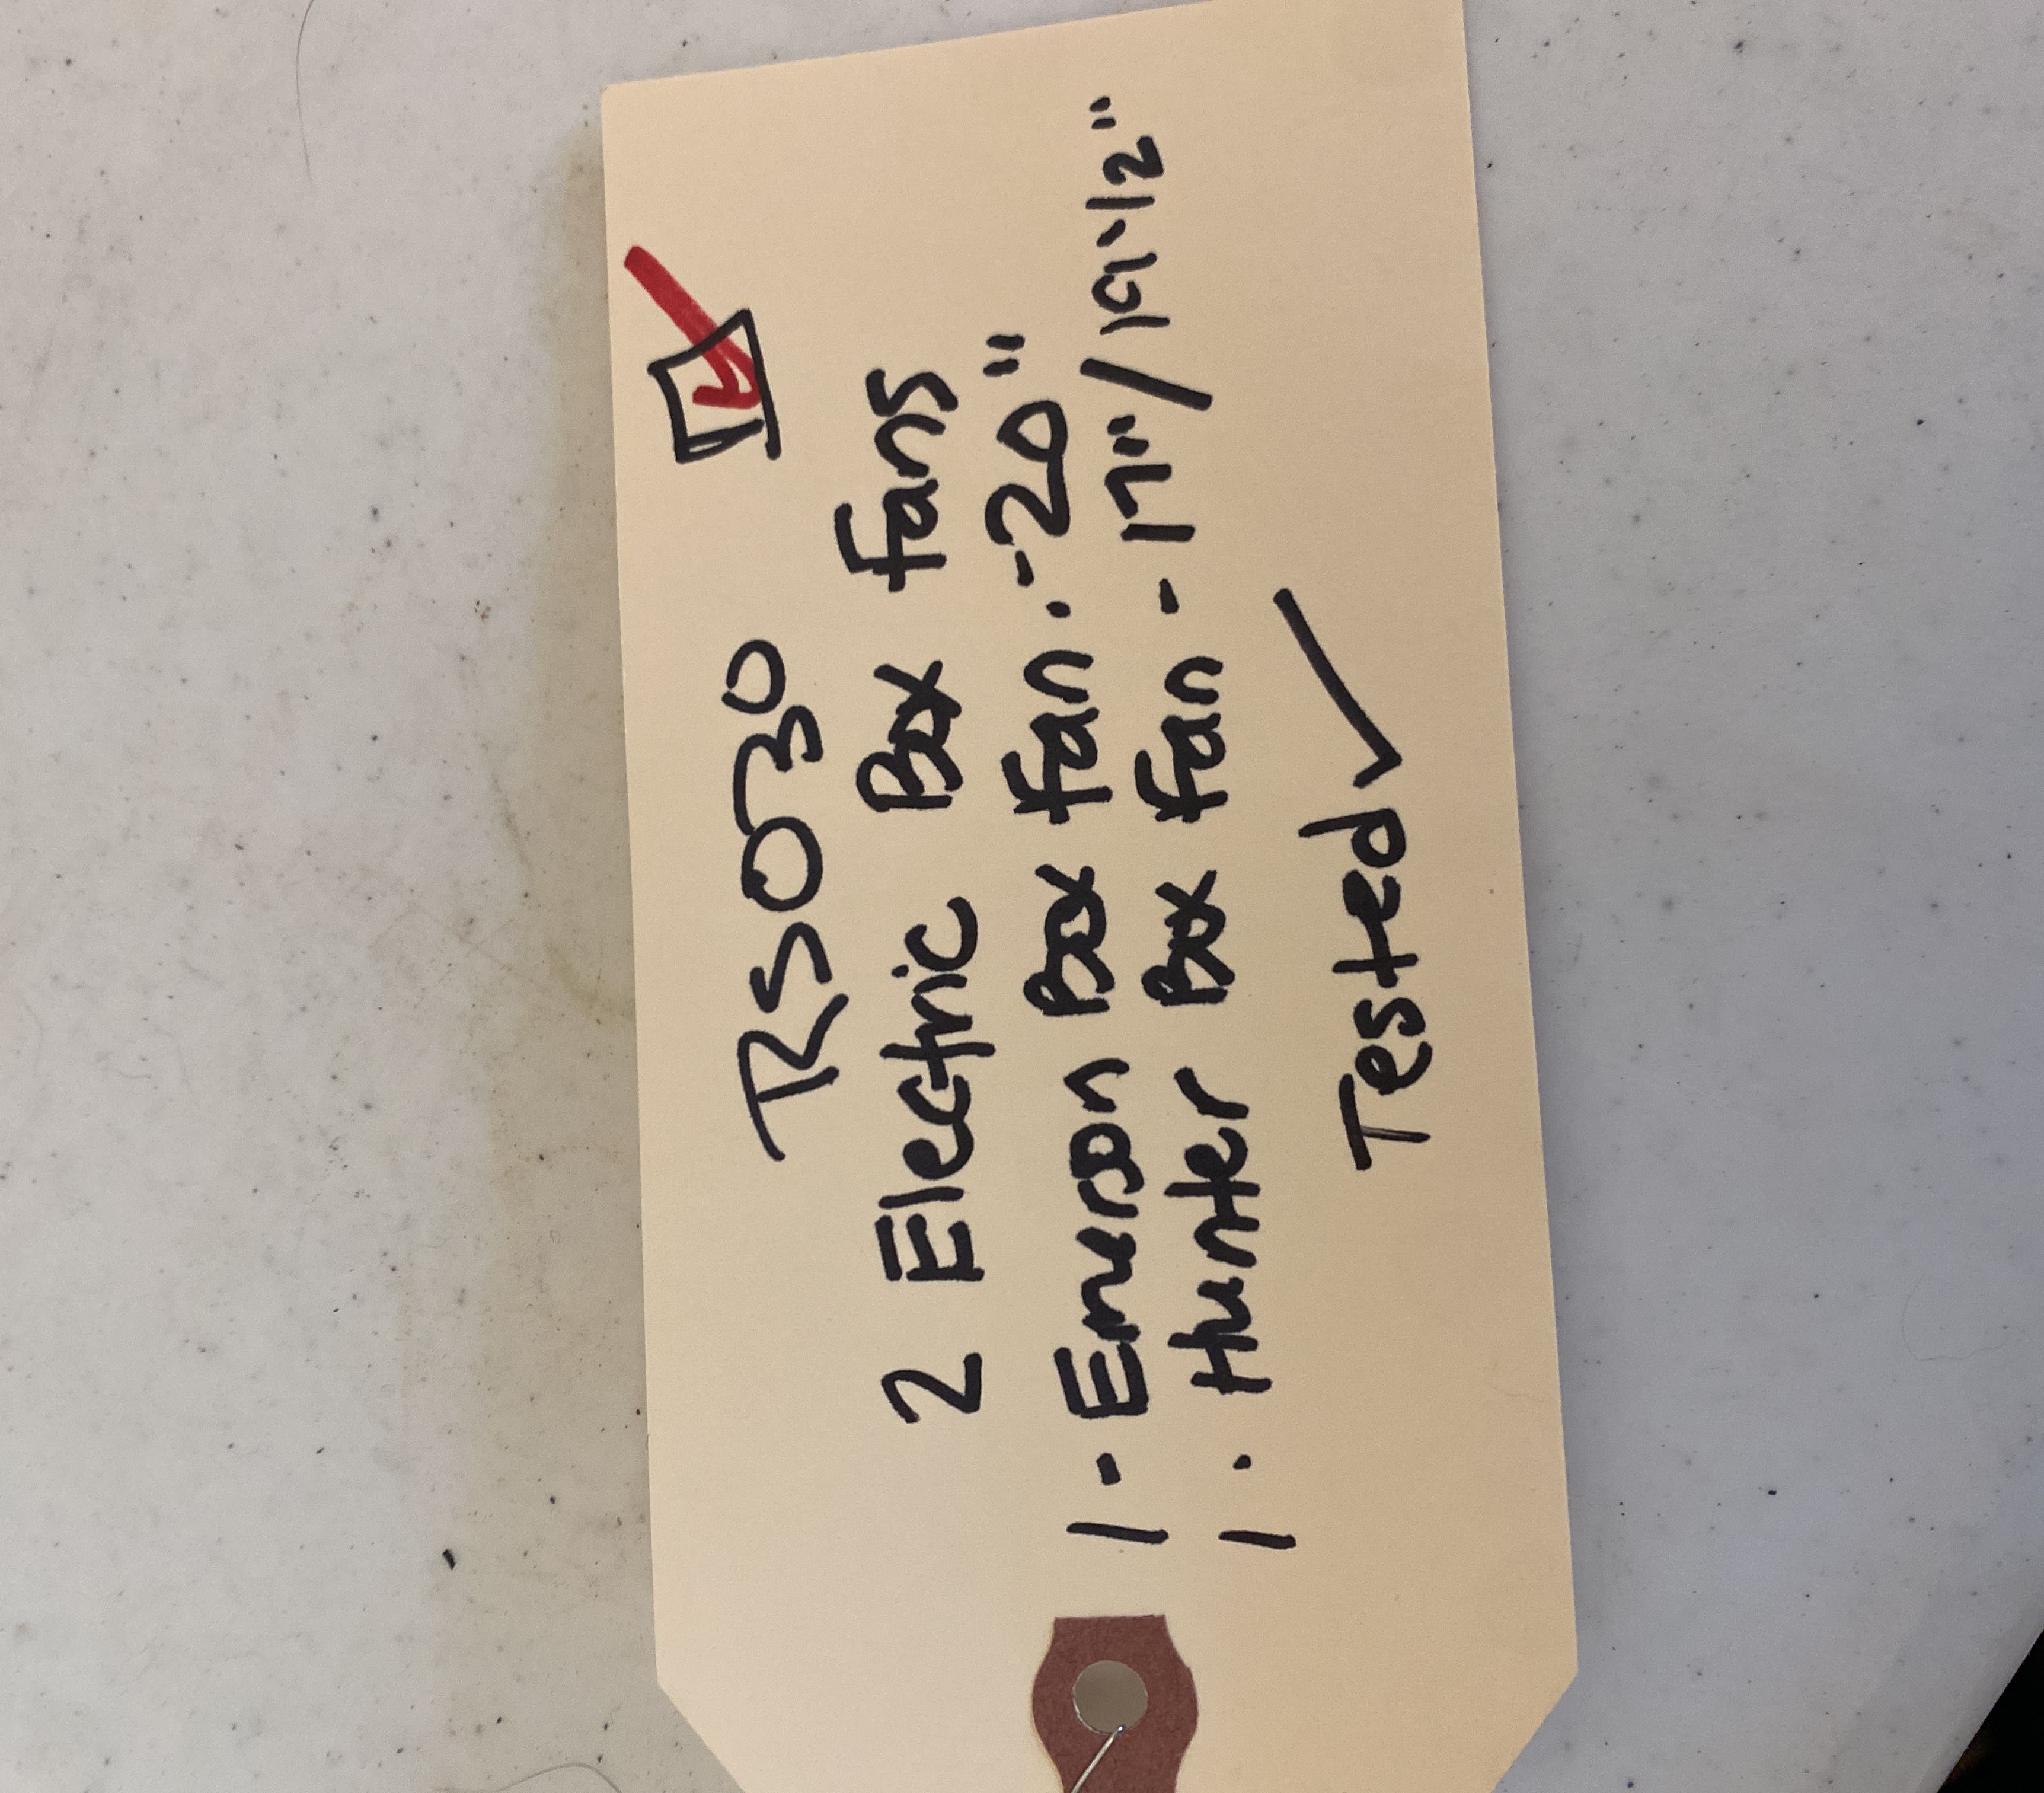 RS030
2 Electric Box Fans
1 - Emerson Box Fan. - 20"
1. Hunter Box Fan - 17"/19-1/2"
Tested ✓